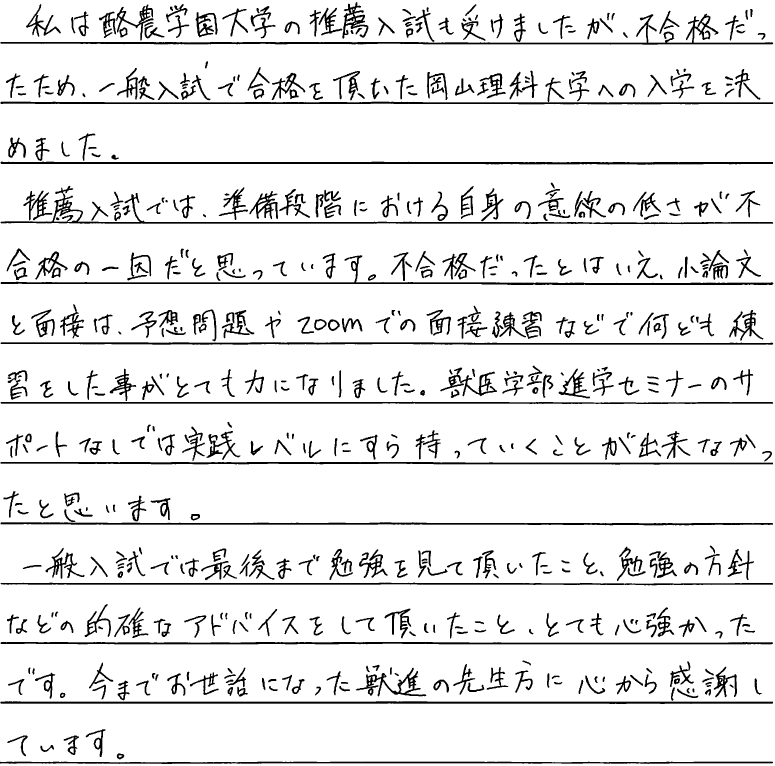 私は酪農学園大学の推薦入試も受けましたが、不合格だっ
たため、一般入試で合格を頂いた岡山理科大学への入学を決
めました。
推薦入試では、準備段階における自身の意欲の低さが不
合格の一因だと思っています。不合格だったとはいえ、小論文
と面接は、予想問題やzoomでの面接練習などで何ども練
習をした事がとても力になりました。獣医学部進学セミナーのサ
ポートなしでは実践レベルにすら持っていくことが出来なかっ
たと思います。
一般入試では最後まで勉強を見て頂いたこと、勉強の方針
などの的確なアドバイスをして頂いたこと、とても心強かった
です。今までお世話になった獣進の先生方に心から感謝し
ています。